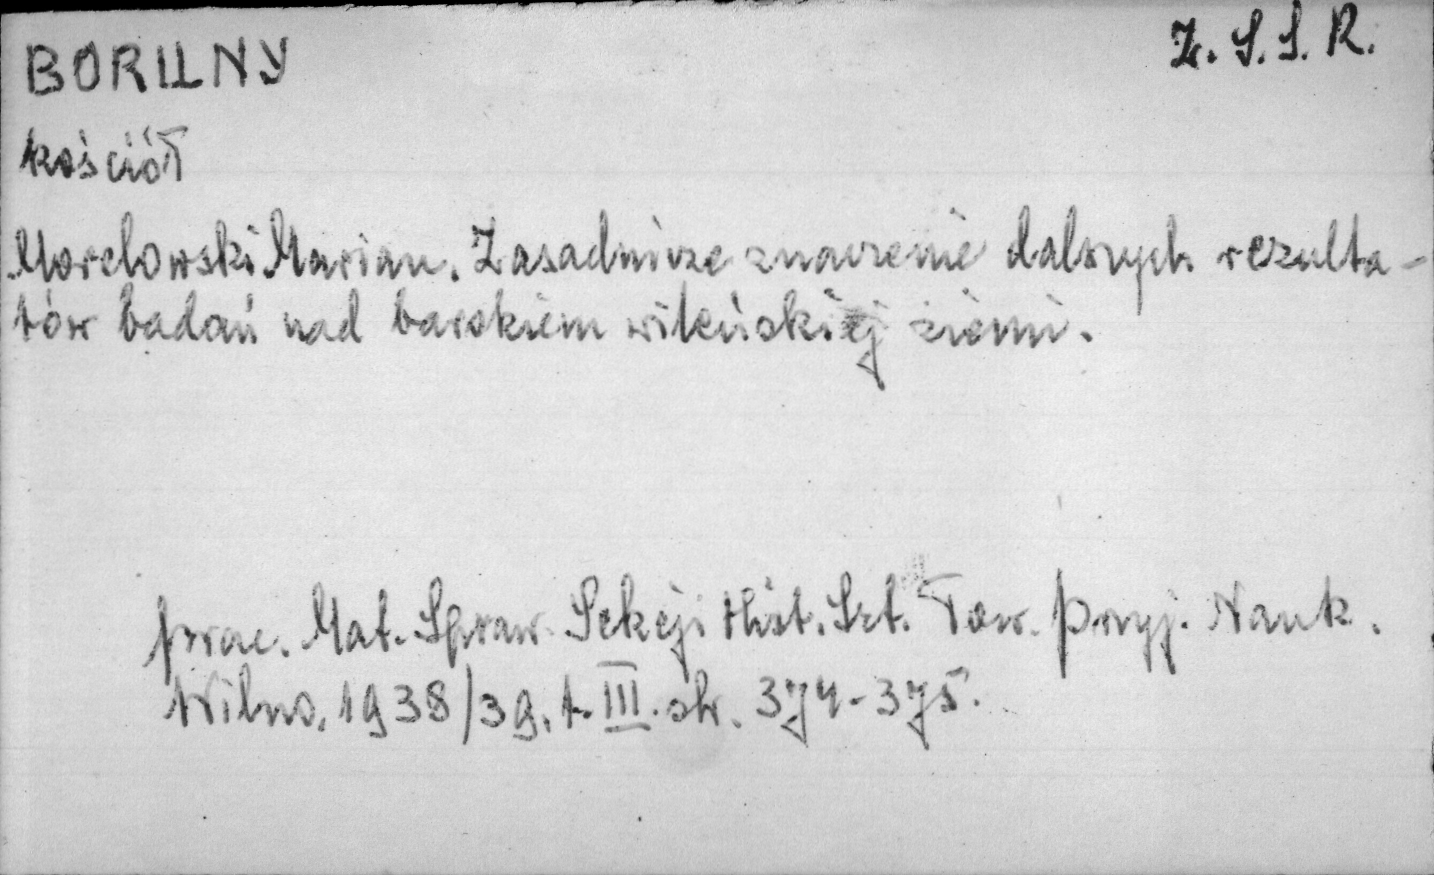 BORUNY
Z. S. S. R.
kościół
Morelowski Marian. Zasadnicze znaczenie dalszych rezulta-
tów badań nad barokiem wileńskiej ziemi.
Prac. Mat. Spraw. Sekcji Hist. Szt. Tow. Przyj. Nauk.
Wilno, 1938/39, t. III. str. 374-375.